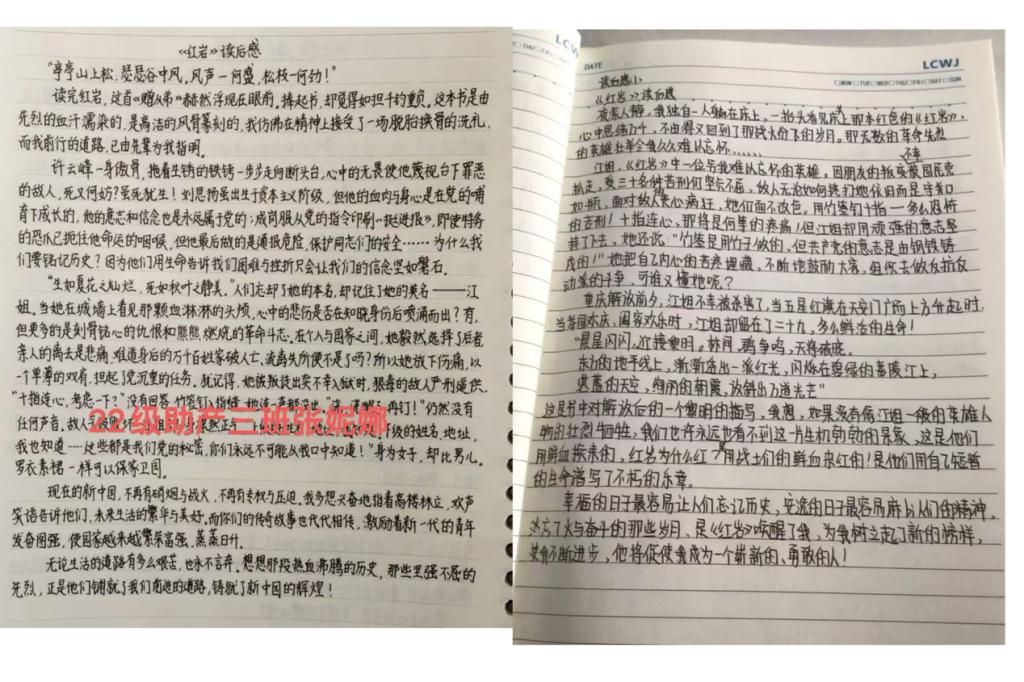 《红岩》读后感
“亭亭山上松,瑟瑟谷中风。风声一何盛,松枝一何劲!”
读完红岩,这首《赠从弟》赫然浮现在眼前。捧起书,却觉得如担千钧重负。这本书是由
先烈的血汗濡染的,是高洁的风骨篆刻的,我仿佛在精神上接受了一场脱胎换骨的洗礼,
而我前行的道路,已由先辈为我指明。
许云峰一身傲骨,拖着生锈的铁铐一步步走向断头台,心中的无畏使他蔑视台下罪恶
的敌人,死又何妨?虽死犹生!刘思扬虽出生于资本主义阶级,但他的血肉与身心是在党的哺
育下成长的,他的意志和信念也是永远属于党的;成岗服从党的指令印刷《挺进报》,即使特务
的恐爪已扼住他命运的咽候,但他最后做的是通报危险,保护同志们的安全……为什么我
们要铭记历史?因为他们用生命告诉我们困难与挫折只会让我们的信念坚如磐石。
“生如夏花之灿烂,死如秋叶之静美。”人们忘却了她的本名,却记住了她的英名——江
姐。当她在城墙上看见那颗血淋淋的头颅,心中的悲伤是否在知晓身份后喷涌而出?有,
但更多的是刻骨铭心的仇恨和熊熊燃烧的革命斗志。在个人与国家之间,她毅然选择了后者
亲人的离去是悲痛,难道身后的万千百姓家破人亡、流离失所便不是了吗?所以她放下伤痛,以
一个单薄的双肩,担起了党沉重的任务。犹记得,她被叛徒出卖不幸入狱时,狠毒的敌人严刑逼供
“十指连心,考虑一下?”没有回答
任何声音,敌人
22级助产三班张妮娜
下级的姓名、地址,
我也知道……这些都是我们党的秘密,你们永远不可能从我口中知道!”身为女子,却比男儿。
罗衣素裙一样可以保家卫国。
现在的新中国,不再有硝烟与战火,不再有专权与压迫。我多想兴奋地指着高楼林立,欢声
笑语告诉他们,未来生活的繁华与美好。而你们的传奇故事也代代相传,激励着新一代的青年
发奋图强,使国家越来越繁荣富强、蒸蒸日升。
无论生活的道路有多么艰苦,也永不言弃。想想那段热血沸腾的历史,那些坚强不屈的
先烈,正是他们铺就了我们前进的道路,铸就了新中国的辉煌!
LCWJ
DATE
LCWJ
MON TUE WED THU FRI SAT SUN
读后感1、
《红岩》读后感
夜深人静,我独自一人躺在床上,一抬头看见床上那本红色的《红岩》,
心中思绪万千,不由得又回到了那战火纷飞的岁月。那无数的革命先烈
的英雄壮举令我久久难以忘怀……
江姐,《红岩》中一位另我难以忘怀的英雄,因朋友的叛变被国民党
抓走,受三十多种苦刑仍坚贞不屈,敌人无论如何拷打她依旧而是守口
如瓶,面对敌人丧心病狂,她仍面不改色。用竹签钉十指——多么恐怖
的苦刑!十指连心,那将是何等的疼痛!但江姐却用顽强的意志坚
挺了下去,她还说:“竹签是用竹子做的,但共产党的意志是由钢铁铸
成的!”她把自己内心的苦寒埋藏,不断地鼓励大家,组织去做反抗反
动派的斗争,可谁又懂她呢?
重庆解放前夕,江姐不幸被杀害了,当五星红旗在天安门广场上方升起时,
当举国欢庆、阖家欢乐时,江姐却留在了二十九,多么鲜活的生命!
“晨星闪闪,迎接黎明。林间,鸡争鸣,天将破晓。
东方的地平线上,渐渐透出一派红光,闪烁在碧绿的嘉陵江上,
湛蓝的天空,绚丽的朝霞,放斜出万道光芒”
这是书中对解放后的一个黎明的描写,我想,如果没有像江姐一般的英雄人
物的壮烈牺牲,我们也许永远也看不到这一片生机勃勃的景象,这是他们
用鲜血换来的,红岩为什么红?用战士们的鲜血染红的!是他们用自己短暂
的生命谱写了不朽的乐章。
幸福的日子最容易让人们忘记历史,安逸的日子最容易腐蚀人们的精神,
淡忘了火与奋斗的那些岁月,是《红岩》唤醒了我,为我树立起了新的榜样,
使我不断进步,他将促使我成为一个崭新的、勇敢的人!